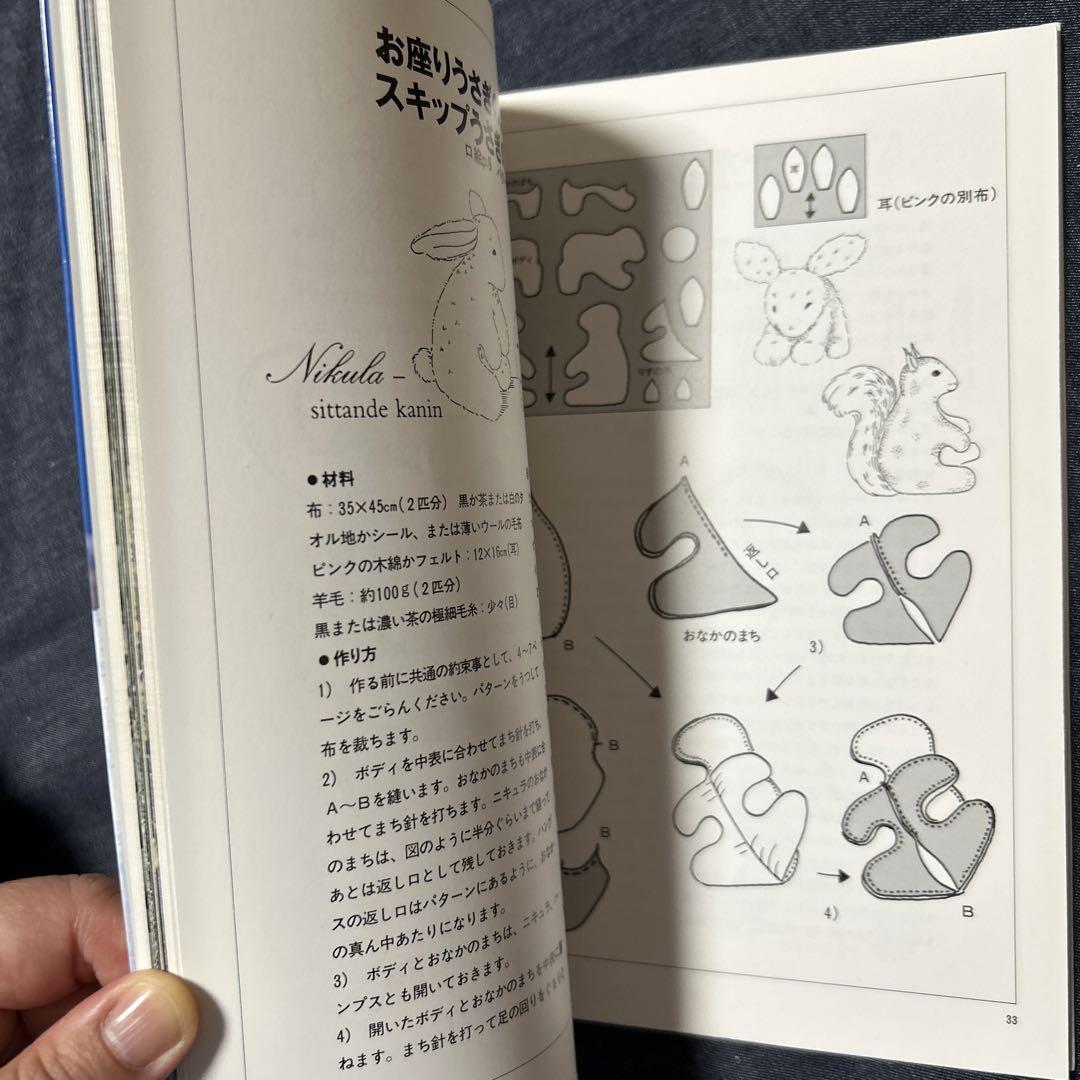 お座りうさぎ
スキップうさぎ
口絵p.9
Nikula –
sittande kanin
●材料
布：35×45cm(２匹分)　黒か茶または白のタ
オル地かシール、または薄いウールの毛布
ピンクの木綿かフェルト：12×16cm(耳)
羊毛：約100g(２匹分)
黒または濃い茶の極細毛糸：少々(目)
●作り方
1)　作る前に共通の約束事として、4〜7ペ
ージをごらんください。パターンをうつして
布を裁ちます。
2)　ボディを中表に合わせてまち針を打ち、
A〜Bを縫います。おなかのまちも中表に合
わせてまち針を打ちます。ニキュラのおなか
のまちは、図のように半分ぐらいまで縫って
あとは返し口として残しておきます。ハンプ
スの返し口はパターンにあるように、おなか
の真ん中あたりになります。
3)　ボディとおなかのまちは、ニキュラ、ハ
ンプスとも開いておきます。
4)　開いたボディとおなかのまちを中表に重
ねます。まち針を打って足の回りをぐるりと
のまち
耳
耳(ピンクの別布)
ボディ
A
返し口
おなかのまち
A
3)
B
B
B
A
B
4)
33